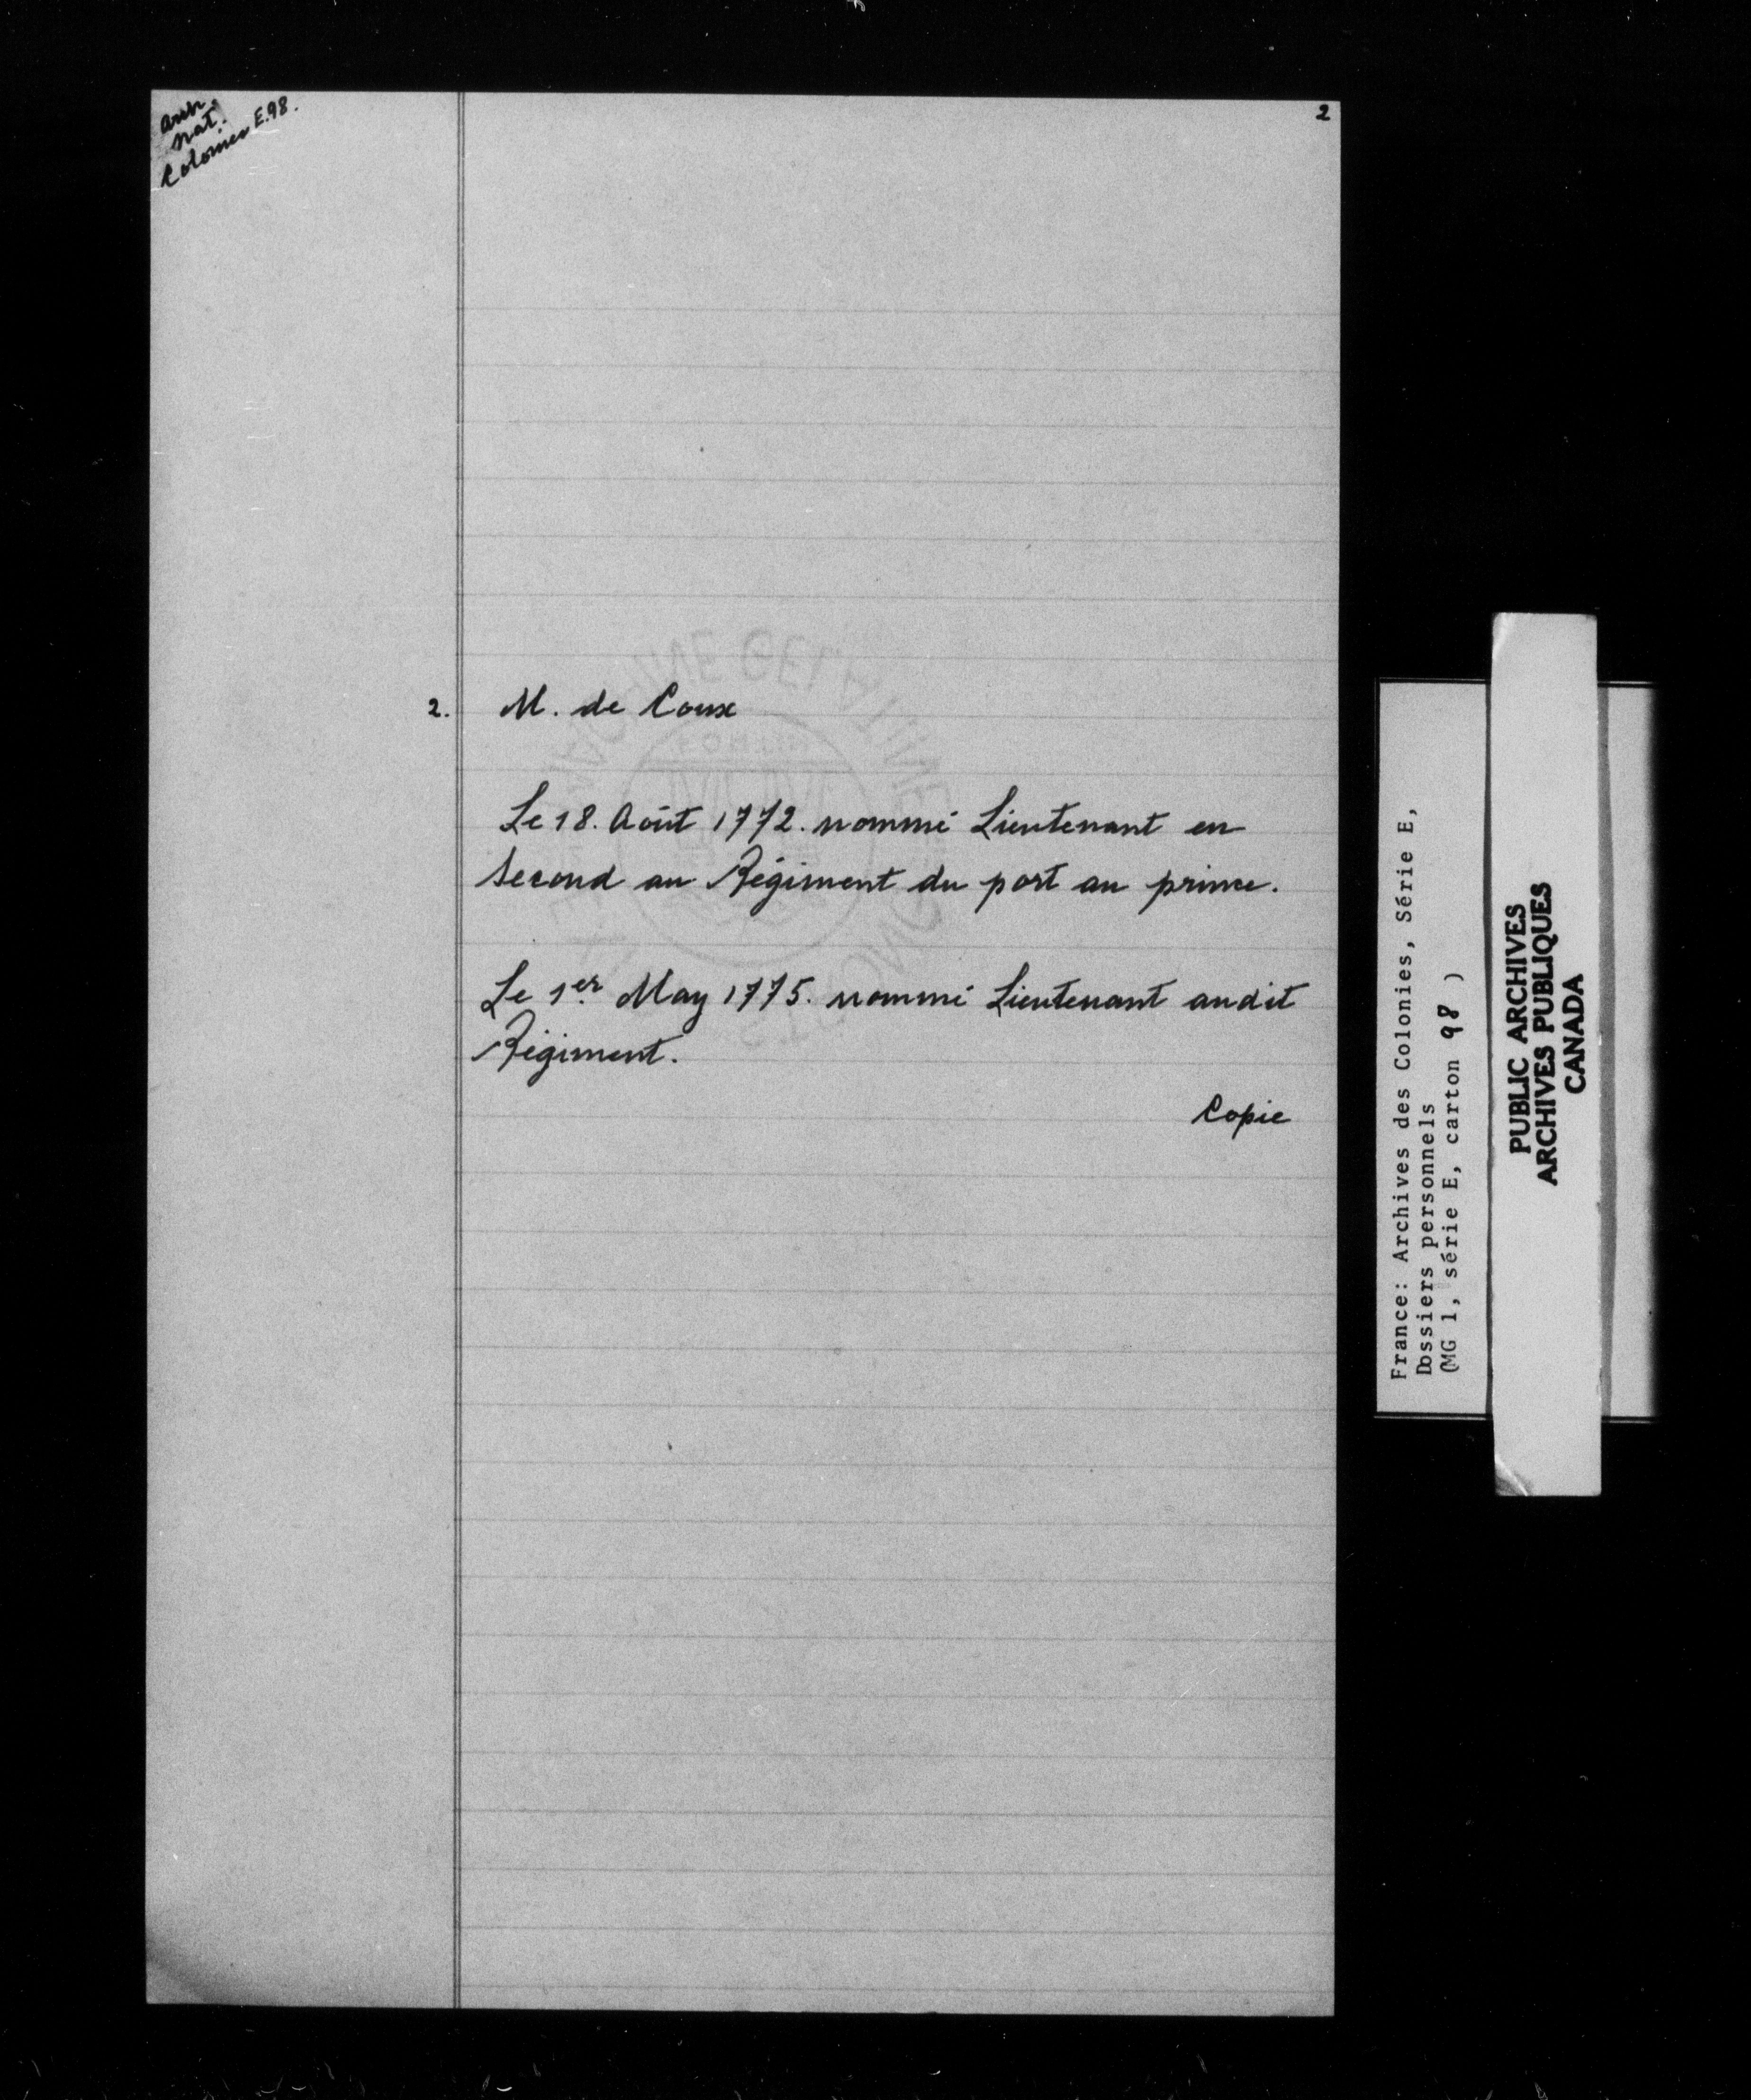 Arch.
nat.
Colonies E.98.
2
2. M. de Coux
Le 18. Août 1772. nommé Lieutenant en
Second au Régiment du port au prince.
Le 1er May 1775. nommé Lieutenant audit
Régiment.
Copie
France: Archives des Colonies, Série E,
Dossiers personnels
(MG 1, série E, carton 98 )
PUBLIC ARCHIVES
ARCHIVES PUBLIQUES
CANADA